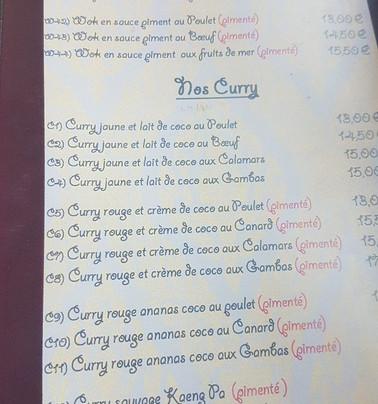 Wok en sauce piment au Poulet (pimenté) 13,00€
Wok en sauce piment au Bœuf (pimenté) 14,50€
Wok en sauce piment aux fruits de mer (pimenté) 15,50€
Nos Curry
C1) Curry jaune et lait de coco au Poulet 13,00€
C2) Curry jaune et lait de coco au Bœuf 14,50
C3) Curry jaune et lait de coco aux Calamars 15,00
C4) Curry jaune et lait de coco aux Gambas 15,00
C5) Curry rouge et crème de coco au Poulet (pimenté)
C6) Curry rouge et crème de coco au Canard (pimenté)
C7) Curry rouge et crème de coco aux Calamars (pimenté) 15,
C8) Curry rouge et crème de coco aux Gambas (pimenté)
C9) Curry rouge ananas coco au poulet (pimenté)
C10) Curry rouge ananas coco au Canard (pimenté)
C11) Curry rouge ananas coco aux Gambas (pimenté)
Curry sauvage Kaeng Pa (pimenté)